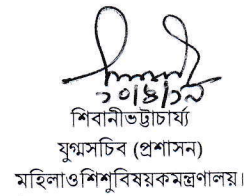 শিবানীভট্টাচার্য্য
যুগ্মসচিব (প্রশাসন)
মহিলাওশিশুবিষয়কমন্ত্রণালয়।